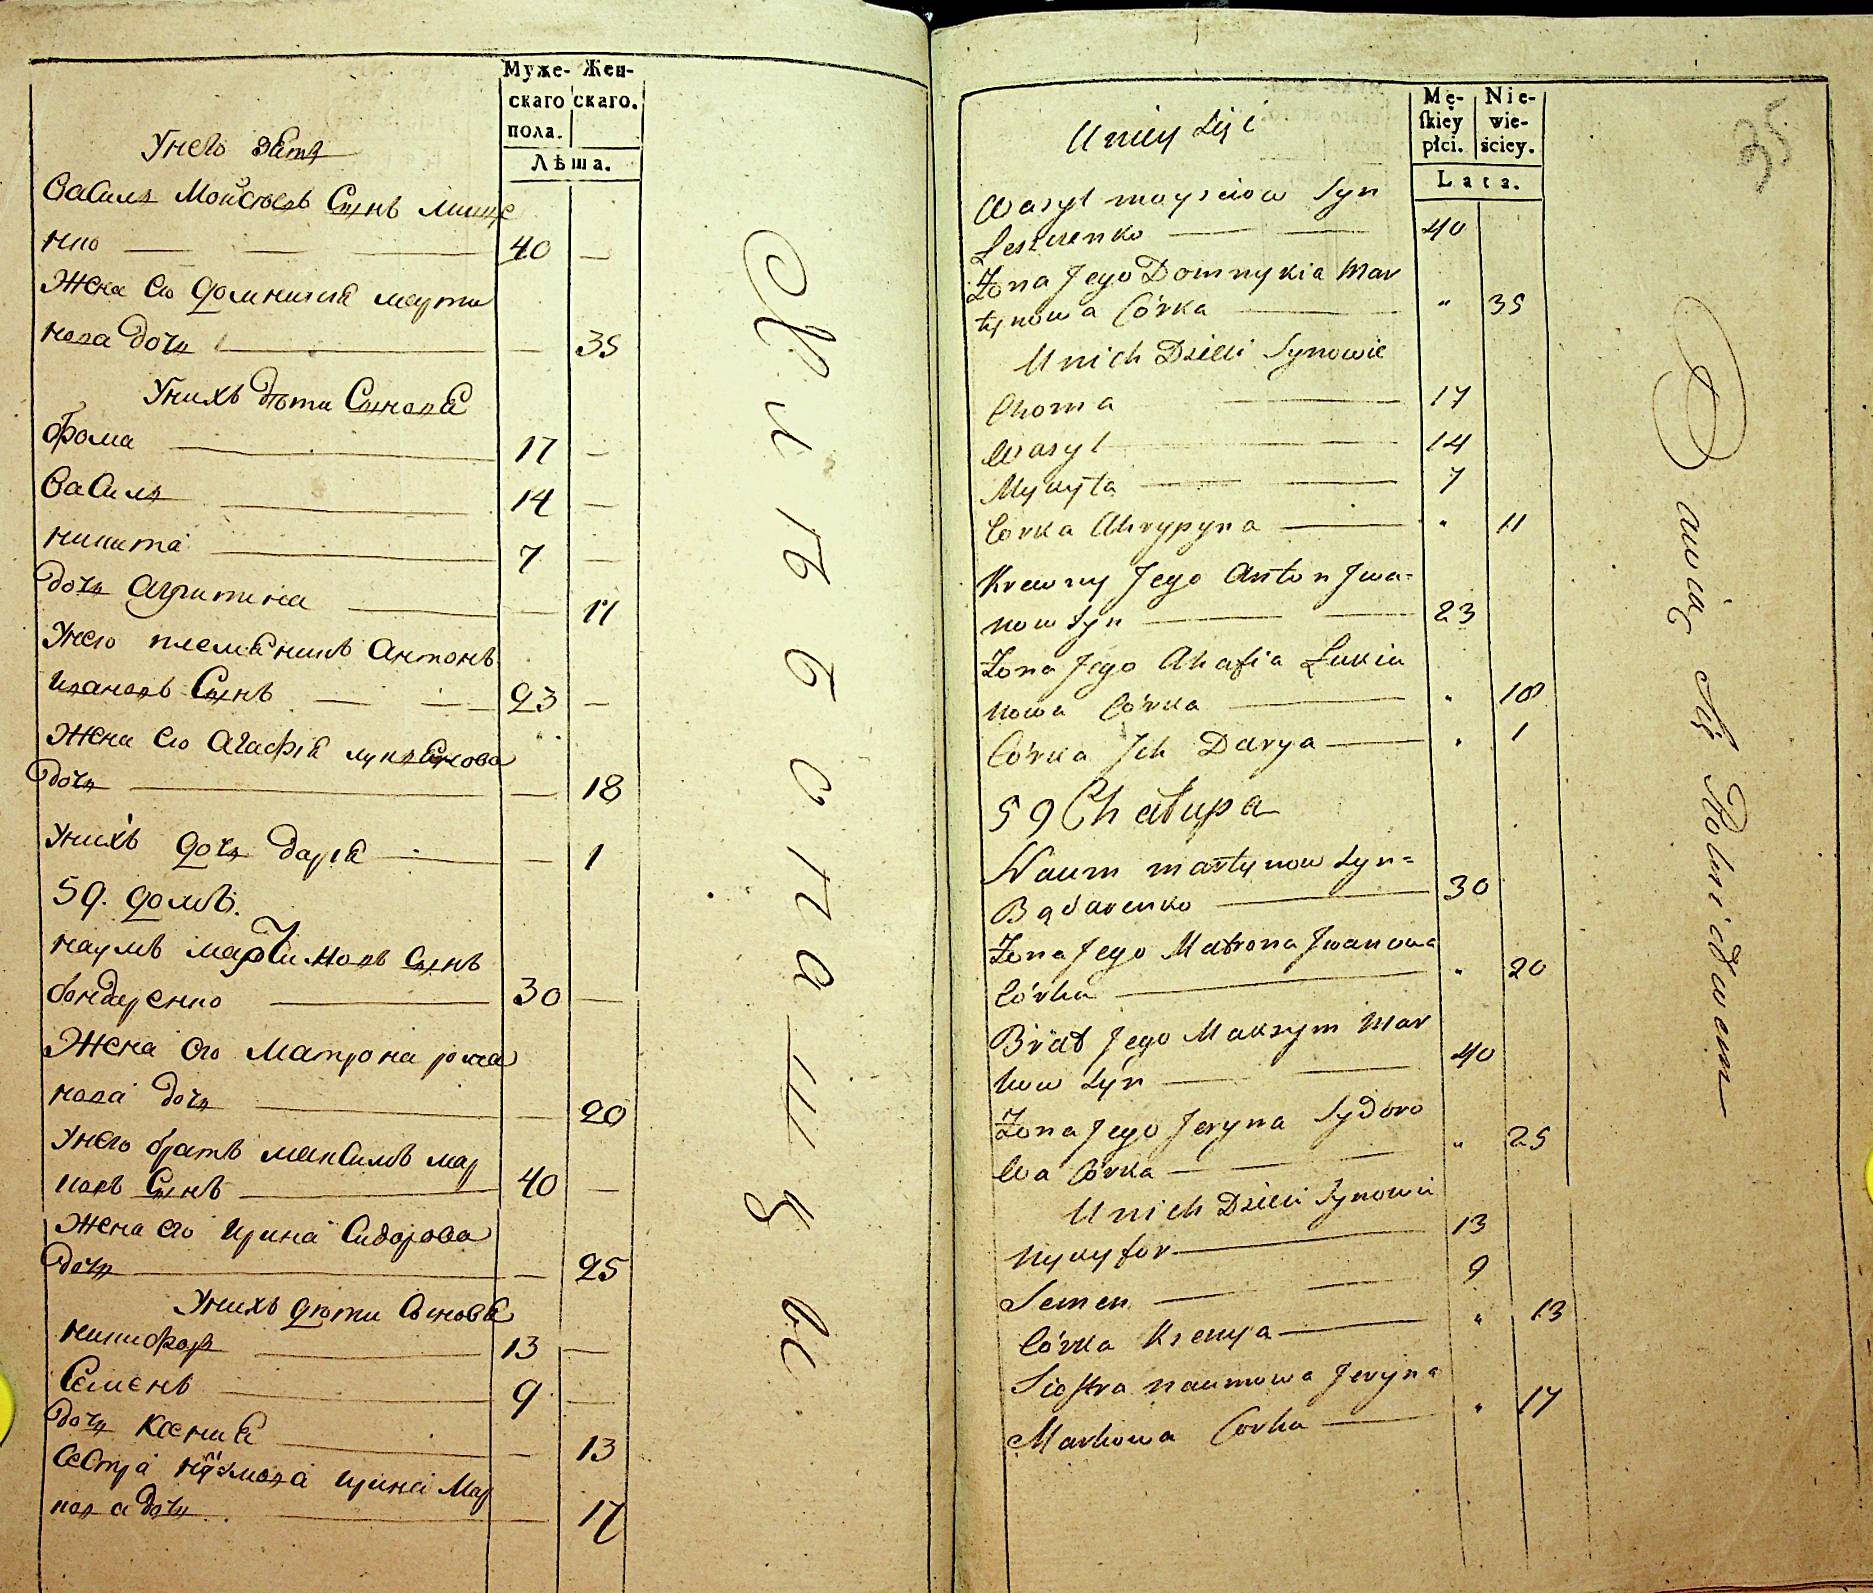 Муже- Жен-
скаго скаго.
пола.
Лѣта.
Унего зять
Василь Мойсѣевъ Сынъ Лище
нко 40 —
Жена его Домникия марти
нова дочь — 35
Унихъ дѣти Сыновя
Фома 17 —
Василь 14 —
Никита 7 —
дочь Агрипина — 11
Унего племяникъ Антонъ
Ивановъ Сынъ 23 —
Жена его Агафія лукьянова
дочь — 18
Унихъ дочь Дарія — 1
59. домъ.
Наумъ Мартиновъ Сынъ
бондаренко 30 —
Жена его Матрона рома
нова дочь — 20
Унего братъ максимъ мар
ковъ Сынъ 40 —
Жена его Ирина Сидорова
дочь — 25
Унихъ дѣти Сынова
Никифор 13 —
Семенъ 9 —
дочь Ксения — 13
Сестра наумова ирина Мар
кова дочь — 17
Mę- Nie-
skiey wie-
płci. ściey.
Lata.
35
Wasyl moyseiow Syn
Leszczenko 40
Żona Jego Domnykia Mar
tynowa Córka " 35
Unich Dzieci Synowie
Choma 17
Wasyl 14
Mykyta 7
Corka Ahrypyna " 11
Krewny Jego Anton Jwa=
now Syn 23
Żona Jego Ahafia Łukia
nowa Córka " 18
Córka Jch Darya " 1
59 Chałupa
Naum martynow Syn=
Bądarenko 30
Żona Jego Matrona Jwanowa
Córka " 20
Brat Jego Maksym Mar
kow Syn 40
Żona Jego Jeryna Sydoro
wa Córka " 25
Unich Dzieci Synowie
Nykyfor 13
Semen 9
Córka Ksenya " 13
Siostra naumowa Jeryna
Markowa Corka " 17